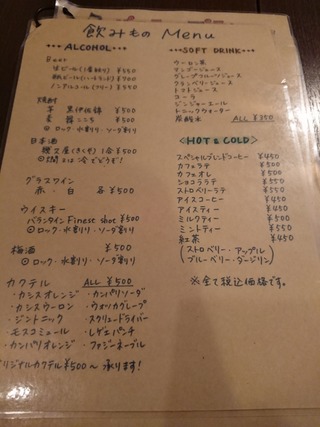 飲みもの Menu
ALCOHOL
Beer
¥550
¥700
ノンアルコール(フリー) ¥550
焼酎
芋 黒伊佐錦 ¥500
麦 ¥500
◎ロック・水割り・ソーダ割り
日本酒
1合 ¥500
グラスワイン
赤・白 各¥500
ウイスキー
バランタイン Finest shot ¥500
◎ロック・水割り・ソーダ割り
梅酒 ¥500
◎ロック・水割り・ソーダ割り
カクテル ALL ¥500
・カシスオレンジ ・カンパリソーダ
・カシスウーロン ・ウォッカグレープ
・ジントニック ・スクリュードライバー
・モスコミュール ・レゲエパンチ
・カンパリオレンジ ・ファジーネーブル
リジナルカクテル ¥500～ 承ります!
SOFT DRINK
ウーロン茶
マンゴージュース
グレープフルーツジュース
クランベリージュース
トマトジュース
コーラ
ジンジャーエール
トニックウォーター
炭酸水 ALL ¥350
<HOT & COLD>
スペシャルブレンドコーヒー ¥450
カフェラテ ¥500
カフェオレ ¥500
ショコララテ ¥550
ストロベリーラテ ¥550
アイスコーヒー ¥450
アイスティー ¥450
ミルクティー ¥500
ミントティー ¥550
紅茶 ¥450
(ストロベリー・アップル
ブルーベリー・ダージリン)
※全て税込価格です。